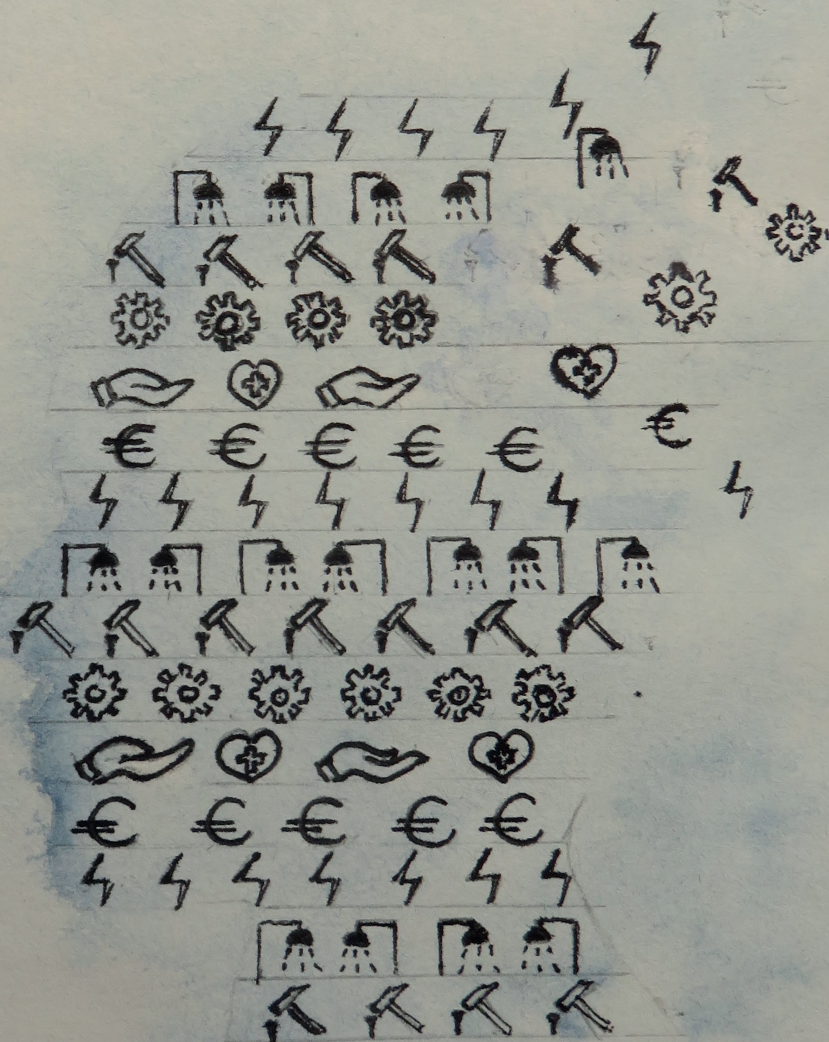 € € € € € €
€ € € € €